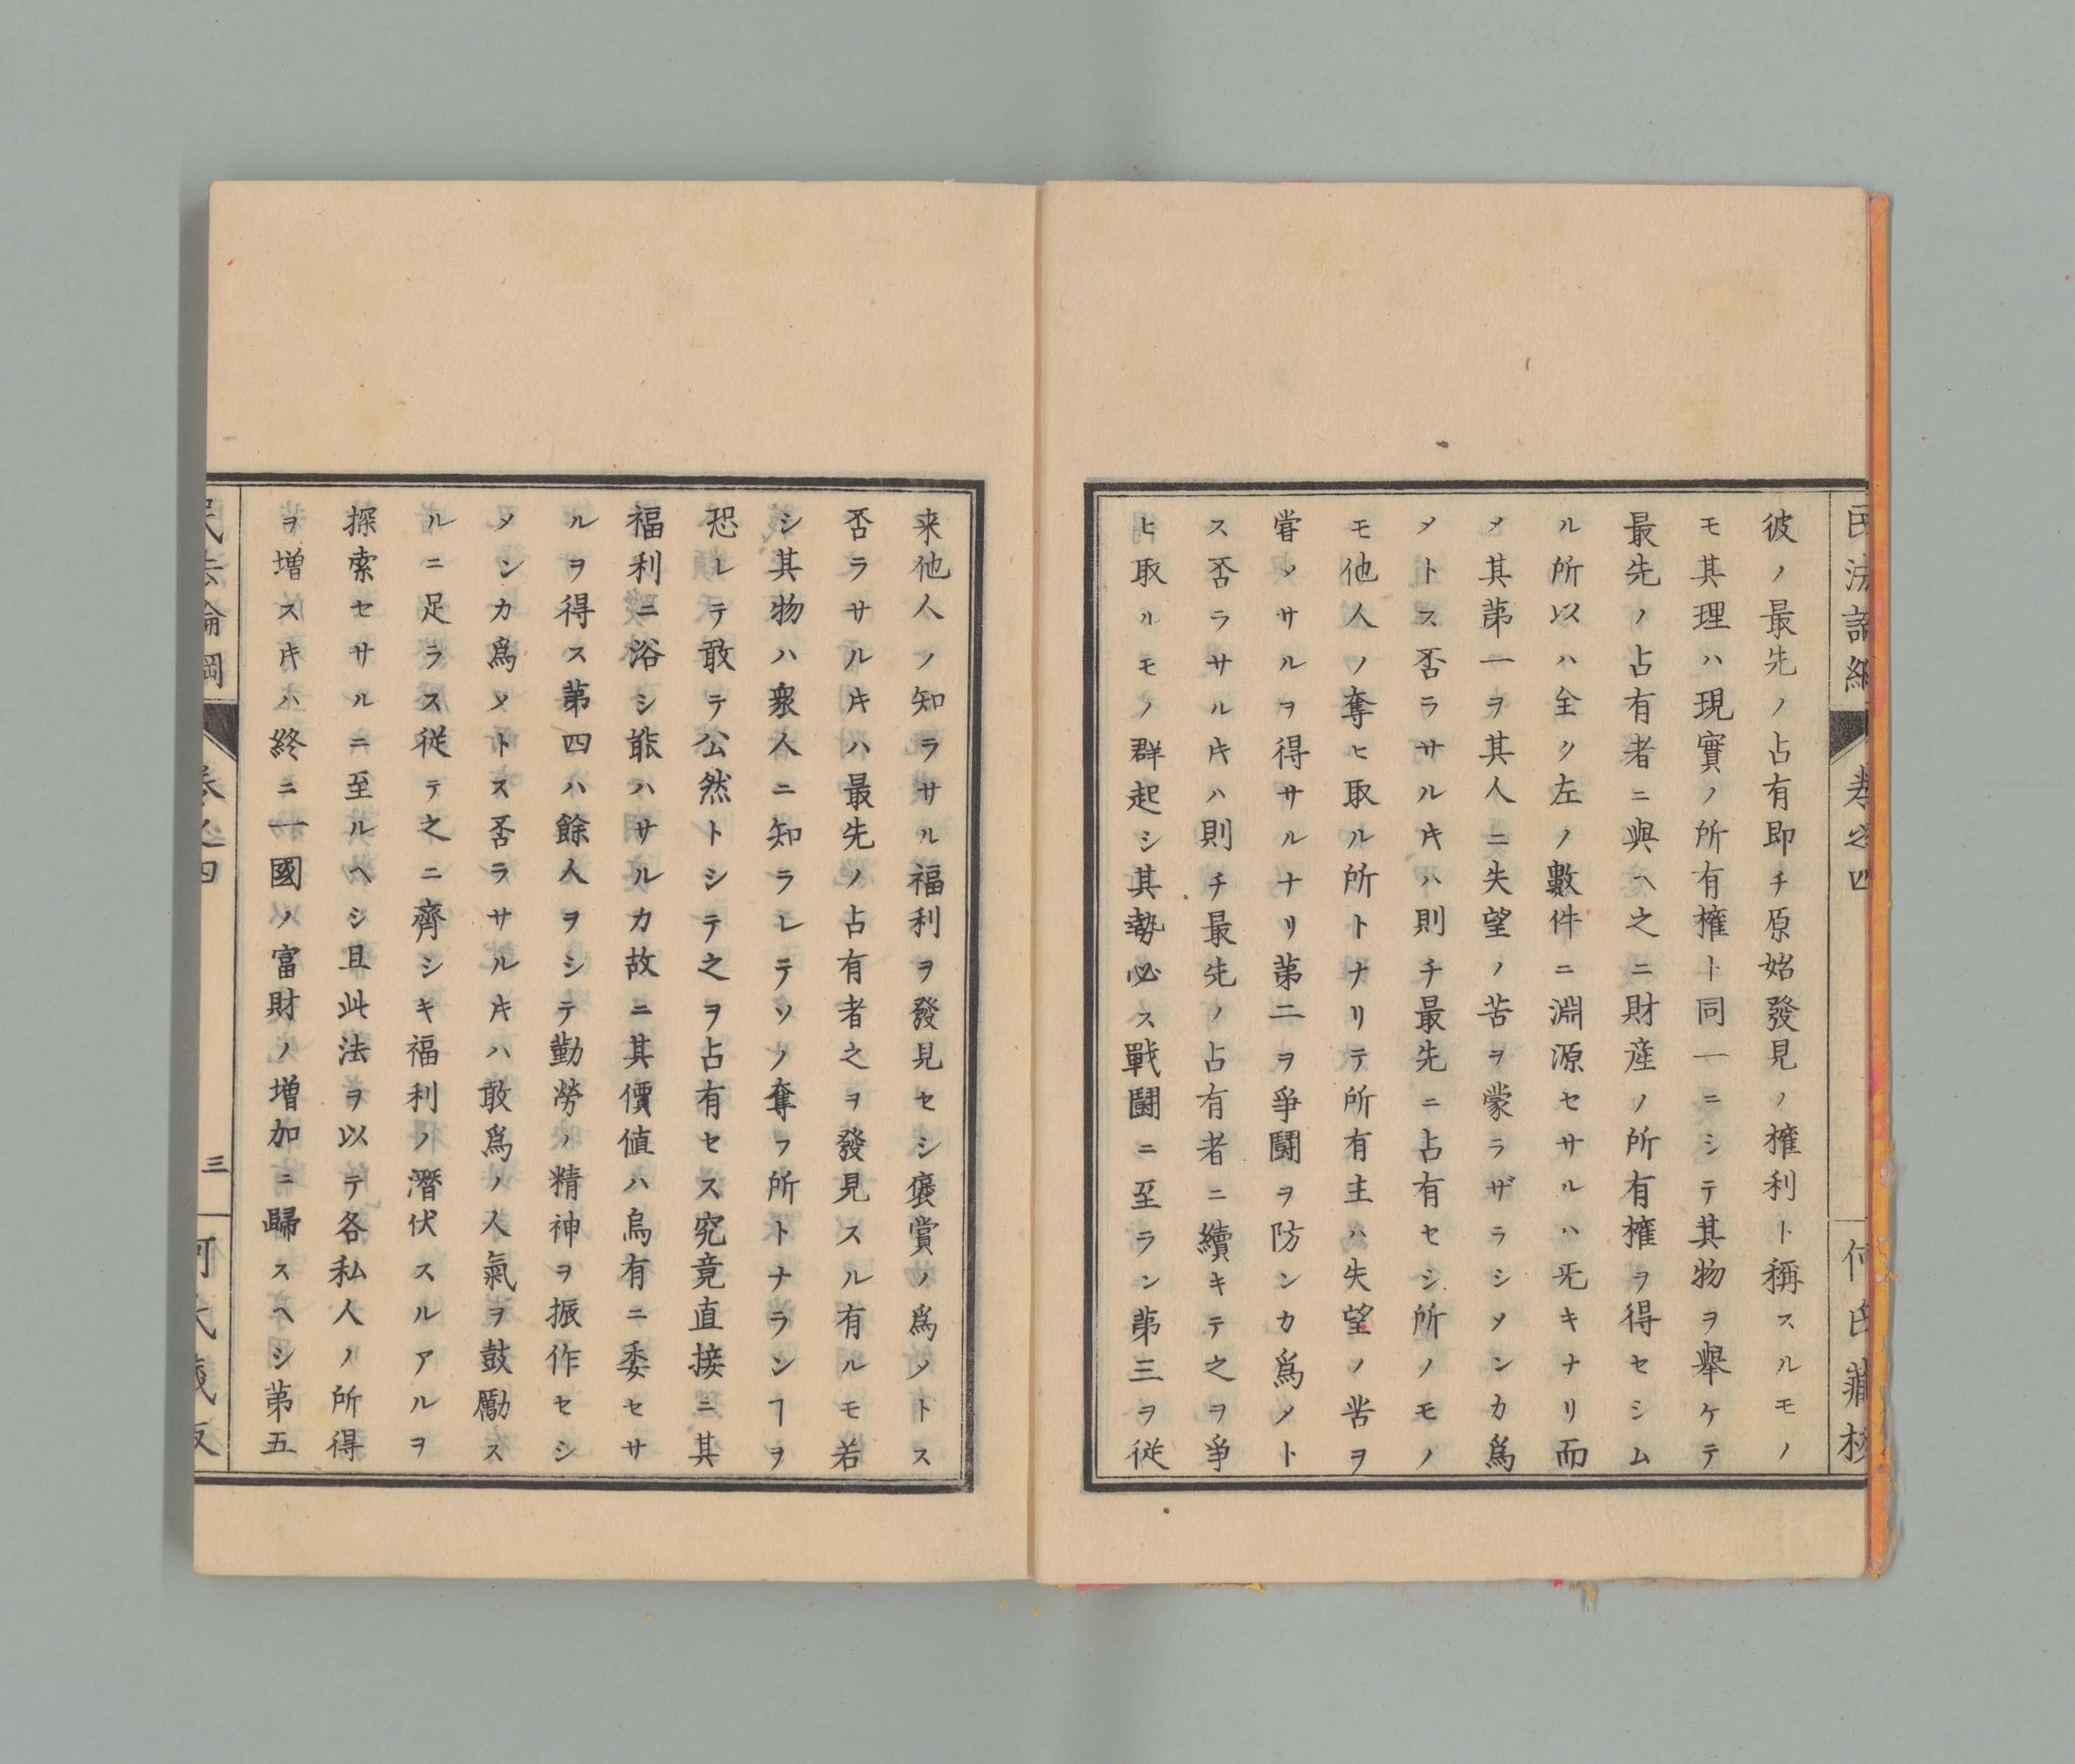 民法論綱
卷之四
何氏藏板
彼ノ最先ノ占有即チ原始發見ノ權利ト稱スルモノ
モ其理ハ現實ノ所有權ト同一ニシテ其物ヲ擧ケテ
最先ノ占有者ニ與ヘ之ニ財産ノ所有權ヲ得セシム
ル所以ハ全ク左ノ數件ニ淵源セサルハ旡キナリ而
メ其第一ヲ其人ニ失望ノ苦ヲ蒙ラザラシメンカ爲
メトス否ラサル𪜈ハ則チ最先ニ占有セシ所ノモノ
モ他人ノ奪ヒ取ル所トナリテ所有主ハ失望ノ苦ヲ
甞メサルヲ得サルナリ第二ヲ爭鬪ヲ防ンカ爲メト
ス否ラサル𪜈ハ則チ最先ノ占有者ニ續キテ之ヲ爭
ヒ取ルモノ群起シ其勢必ス戰鬪ニ至ラン第三ヲ從
来他人ノ知ラサル福利ヲ發見セシ褒賞ノ爲メトス
否ラサル𪜈ハ最先ノ占有者之ヲ發見スル有ルモ若
シ其物ハ衆人ニ知ラレテソノ奪フ所トナランヿヲ
恐レテ敢テ公然トシテ之ヲ占有セス究竟直接ニ其
福利ニ浴シ能ハサルカ故ニ其價値ハ烏有ニ委セサ
ルヲ得ス第四ハ餘人ヲシテ勤勞ノ精神ヲ振作セシ
メンカ爲メトス否ラサル𪜈ハ敢爲ノ人氣ヲ鼓勵ス
ルニ足ラス從テ之ニ齊シキ福利ノ潛伏スルアルヲ
探索セサルニ至ルヘシ且此法ヲ以テ各私人ノ所得
ヲ増ス𪜈ハ終ニ一國ノ富財ノ増加ニ歸スヘシ第五
民法論綱
卷之四
三
何氏藏板